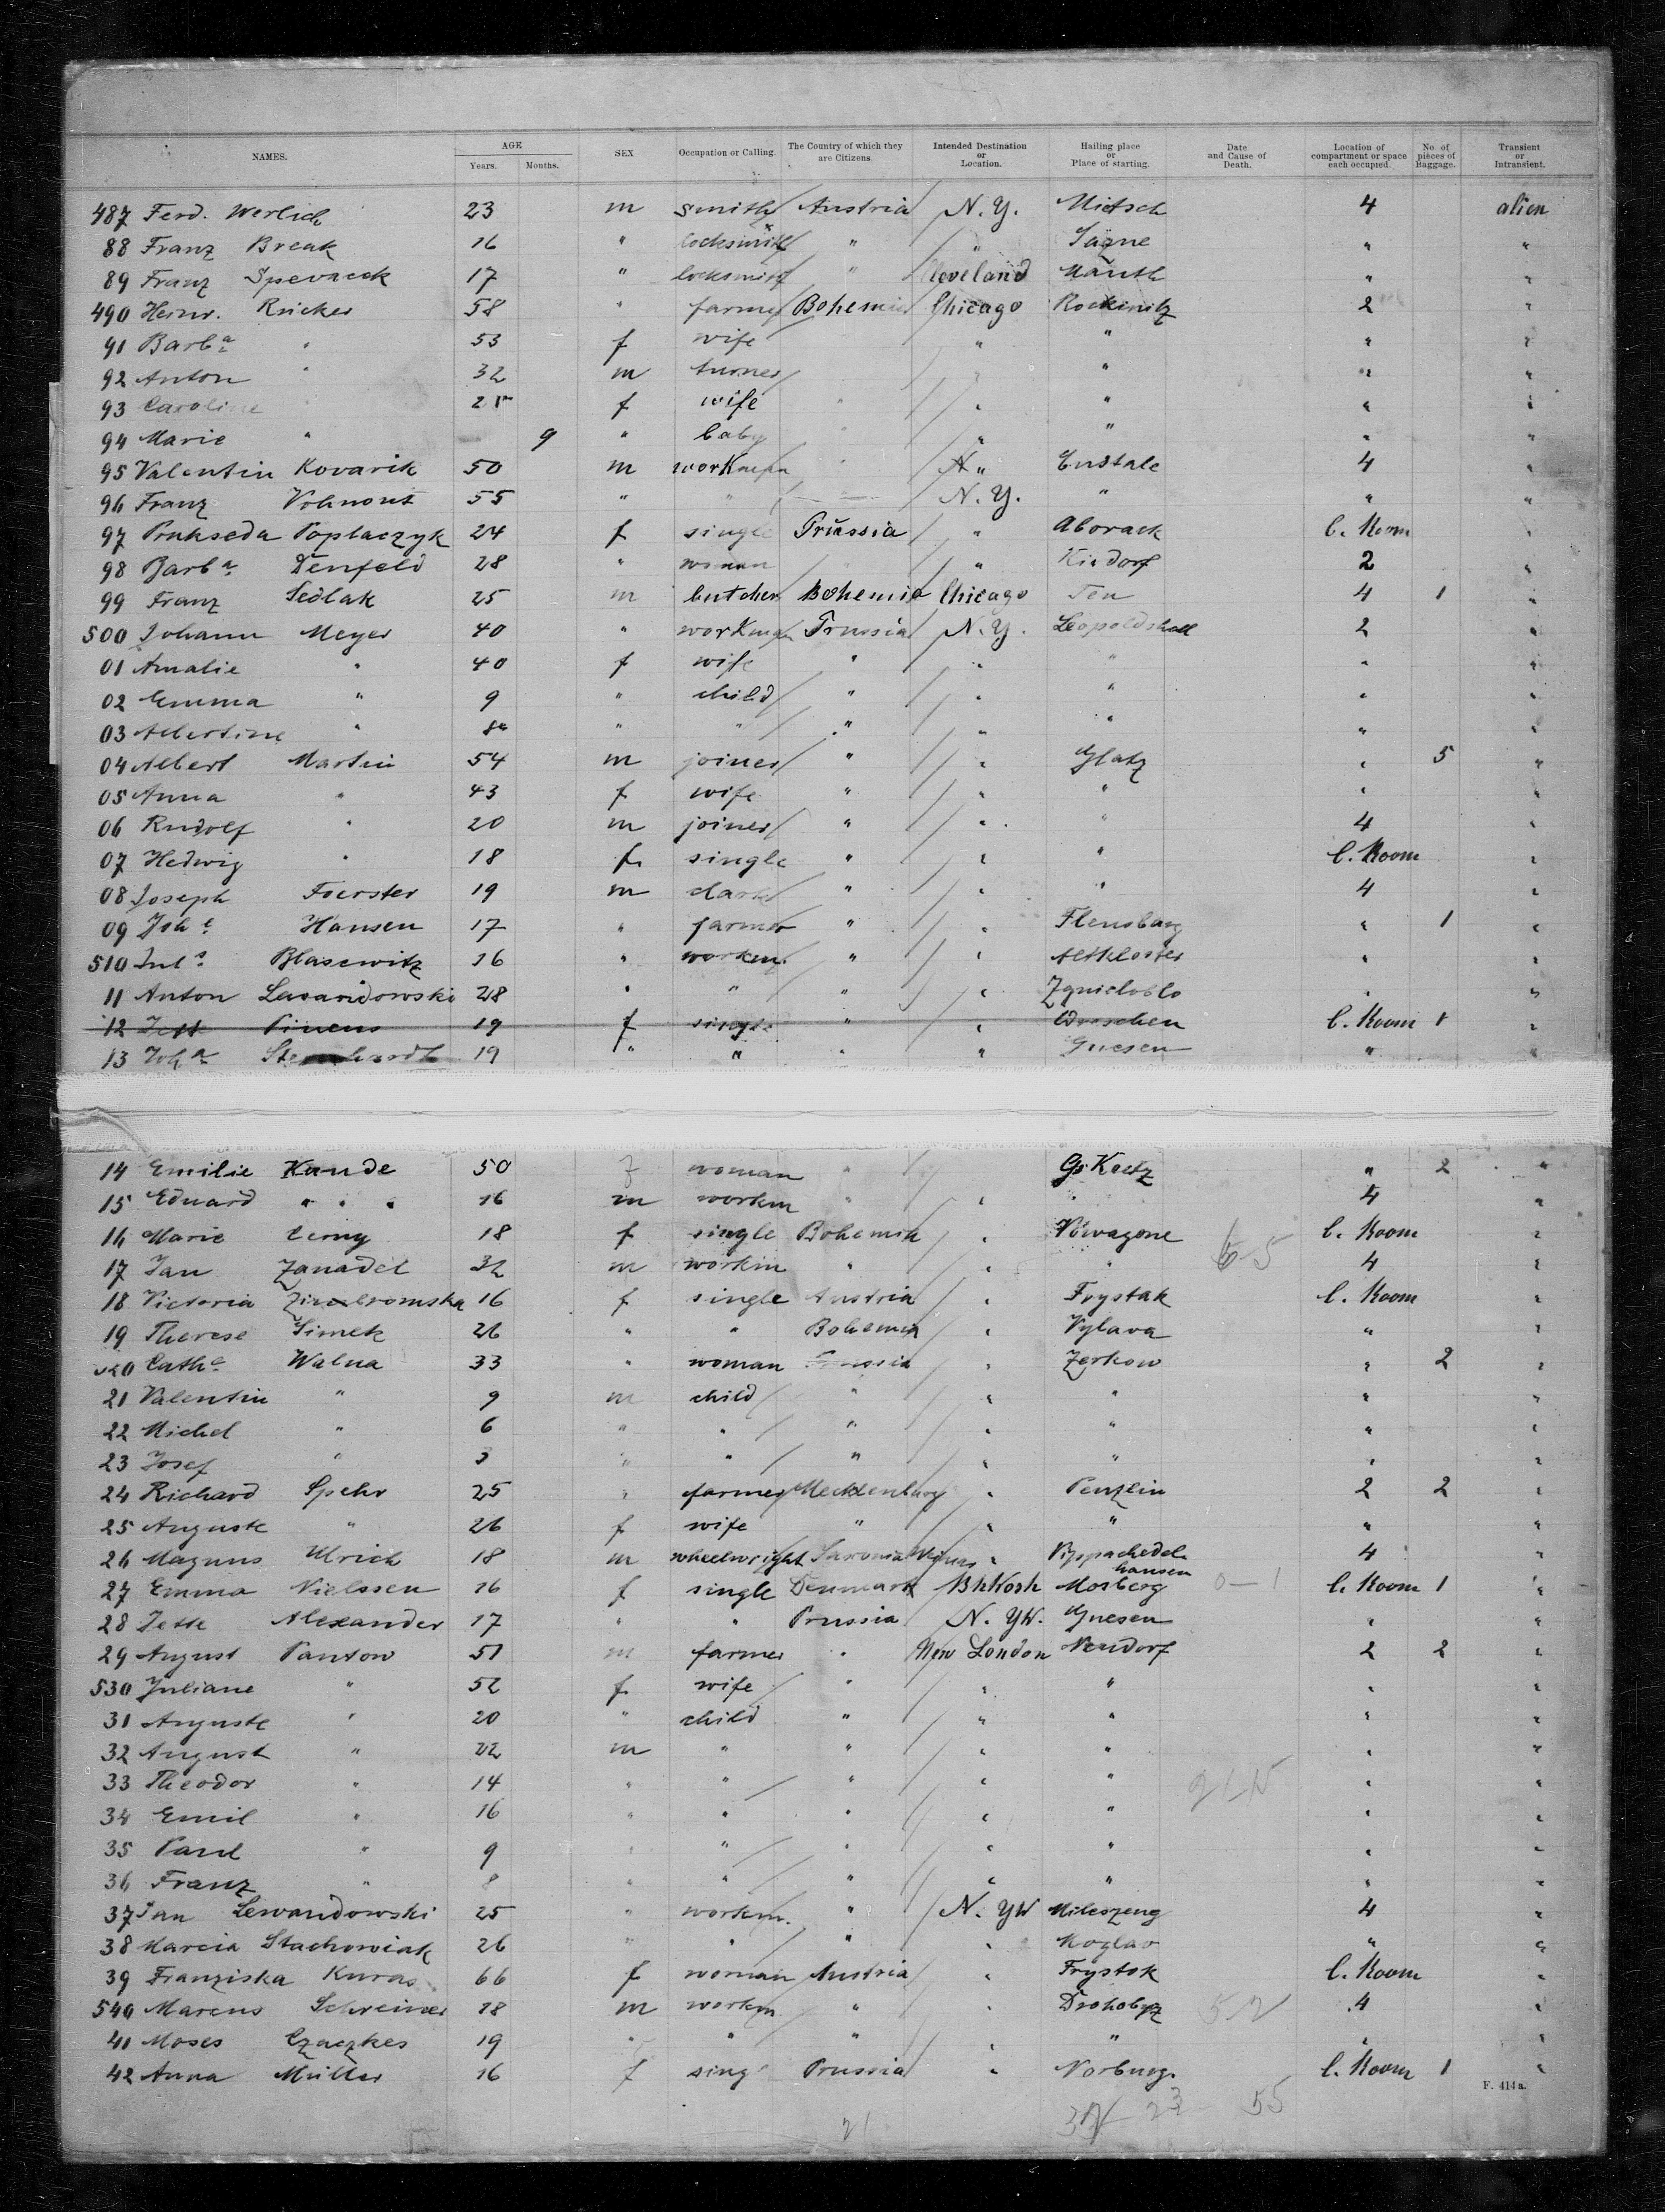 NAMES. AGE SEX Occupation or Calling. The Country of which they are Citizens. Intended Destination or Location. Hailing place or Place of starting. Date and Cause of Death. Location of compartment or space each occupied. No. of pieces of Baggage. Transient or Intransient.
Years. Months.
487 Ferd. Werlich 23 m smith Austria N.Y. Mietsch 4 alien
88 Franz Break 16 " locksmith " " " "
89 Franz Spevacek 17 " locksmith " Cleveland Mauth " "
490 Heinr. Rucker 58 " farmer Bohemia Chicago Rockinitz 2 "
91 Barba " 53 f wife " " " "
92 Anton " 32 m turner " " "
93 Caroline " f wife " " " " "
94 Marie " 9 " baby " " " "
95 Valentin Kovarik 50 m workman " " 4 "
96 Franz Vohnout 55 " " " N.Y. " " "
97 Poplaczyk 24 f single Prussia " C. Room "
98 Barba Denfeld 28 " woman " " 2 "
99 Franz Sedlak 25 m butcher Bohemia Chicago 4 1 "
500 Johann Meyer 40 " workman Prussia N.Y. Leopoldshall 2 "
01 Amalie " 40 f wife " " " " "
02 Emma " 9 " child " " " " "
03 Albertine " " " " " " " "
04 Albert Martin 54 m joiner " " Glatz " 5 "
05 Anna " 43 f wife " " " " "
06 Rudolf " 20 m joiner " " " 4 "
07 Hedwig " 18 f single " " " C. Room "
08 Joseph Foerster 19 m clark " " " 4 "
09 Johs Hansen 17 " farmer " " Flensburg " 1 "
510 Juls Blasewitz 16 " workm. " " Altkloster " "
11 Anton 28 " " " " " "
12 Jette Pineus 19 f single " " Wreschen C. Room 1 "
13 Joha 19 " " " " Gnesen " "
14 Emilie Kunde 50 f woman " Gr. Koetz " 2 "
15 Eduard " 16 m workm " " " 4 "
16 Marie Cerny 18 f single Bohemia " C. Room "
17 Jan Zanadel 32 m workm " " " 4 "
18 Victoria 16 f single Austria " Frystak C. Room "
19 Therese Simek 26 " " Bohemia " Vylava " "
520 Catha Walna 33 " woman Prussia " Zerkow " 2 "
21 Valentin " 9 m child " " " " "
22 Michel " 6 " " " " " " "
23 Josef " 3 " " " " " " "
24 Richard Spehr 25 " farmer Mecklenburg " Penzlin 2 2 "
25 Auguste " 26 f wife " " " " "
26 Magnus Ulrich 18 m wheelwright Saxonia " Vippachedel- 4 "
hausen
27 Emma Nielssen 16 f single Denmark Morberg 0-1 C. Room 1 "
28 Jette Alexander 17 " " Prussia N. YW. Gnesen " "
29 August Panton 51 m farmer " New London Neudorf 2 2 "
530 Juliane " 52 f wife " " " " "
31 Auguste " 20 " child " " " " "
32 August " 22 m " " " " " "
33 Theodor " 14 " " " " " " "
34 Emil " 16 " " " " " " "
35 Paul " 9 " " " " " " "
36 Franz " 8 " " " " " " "
37 Jan Lewandowski 25 " workm. " N. YW Mileszeng 4 "
38 Marcia Stachowiak 26 " " " " Kozlao " "
39 Franziska Kuras 66 f woman Austria " Frystok C. Room "
540 Marcus Schreiner 18 m workm " " Drohobycz 4 "
41 Moses Czaczkes 19 " " " " " " "
42 Anna Müller 16 f singl Prussia " Norburg. C. Room 1 "
F. 414 a.
21 23 55